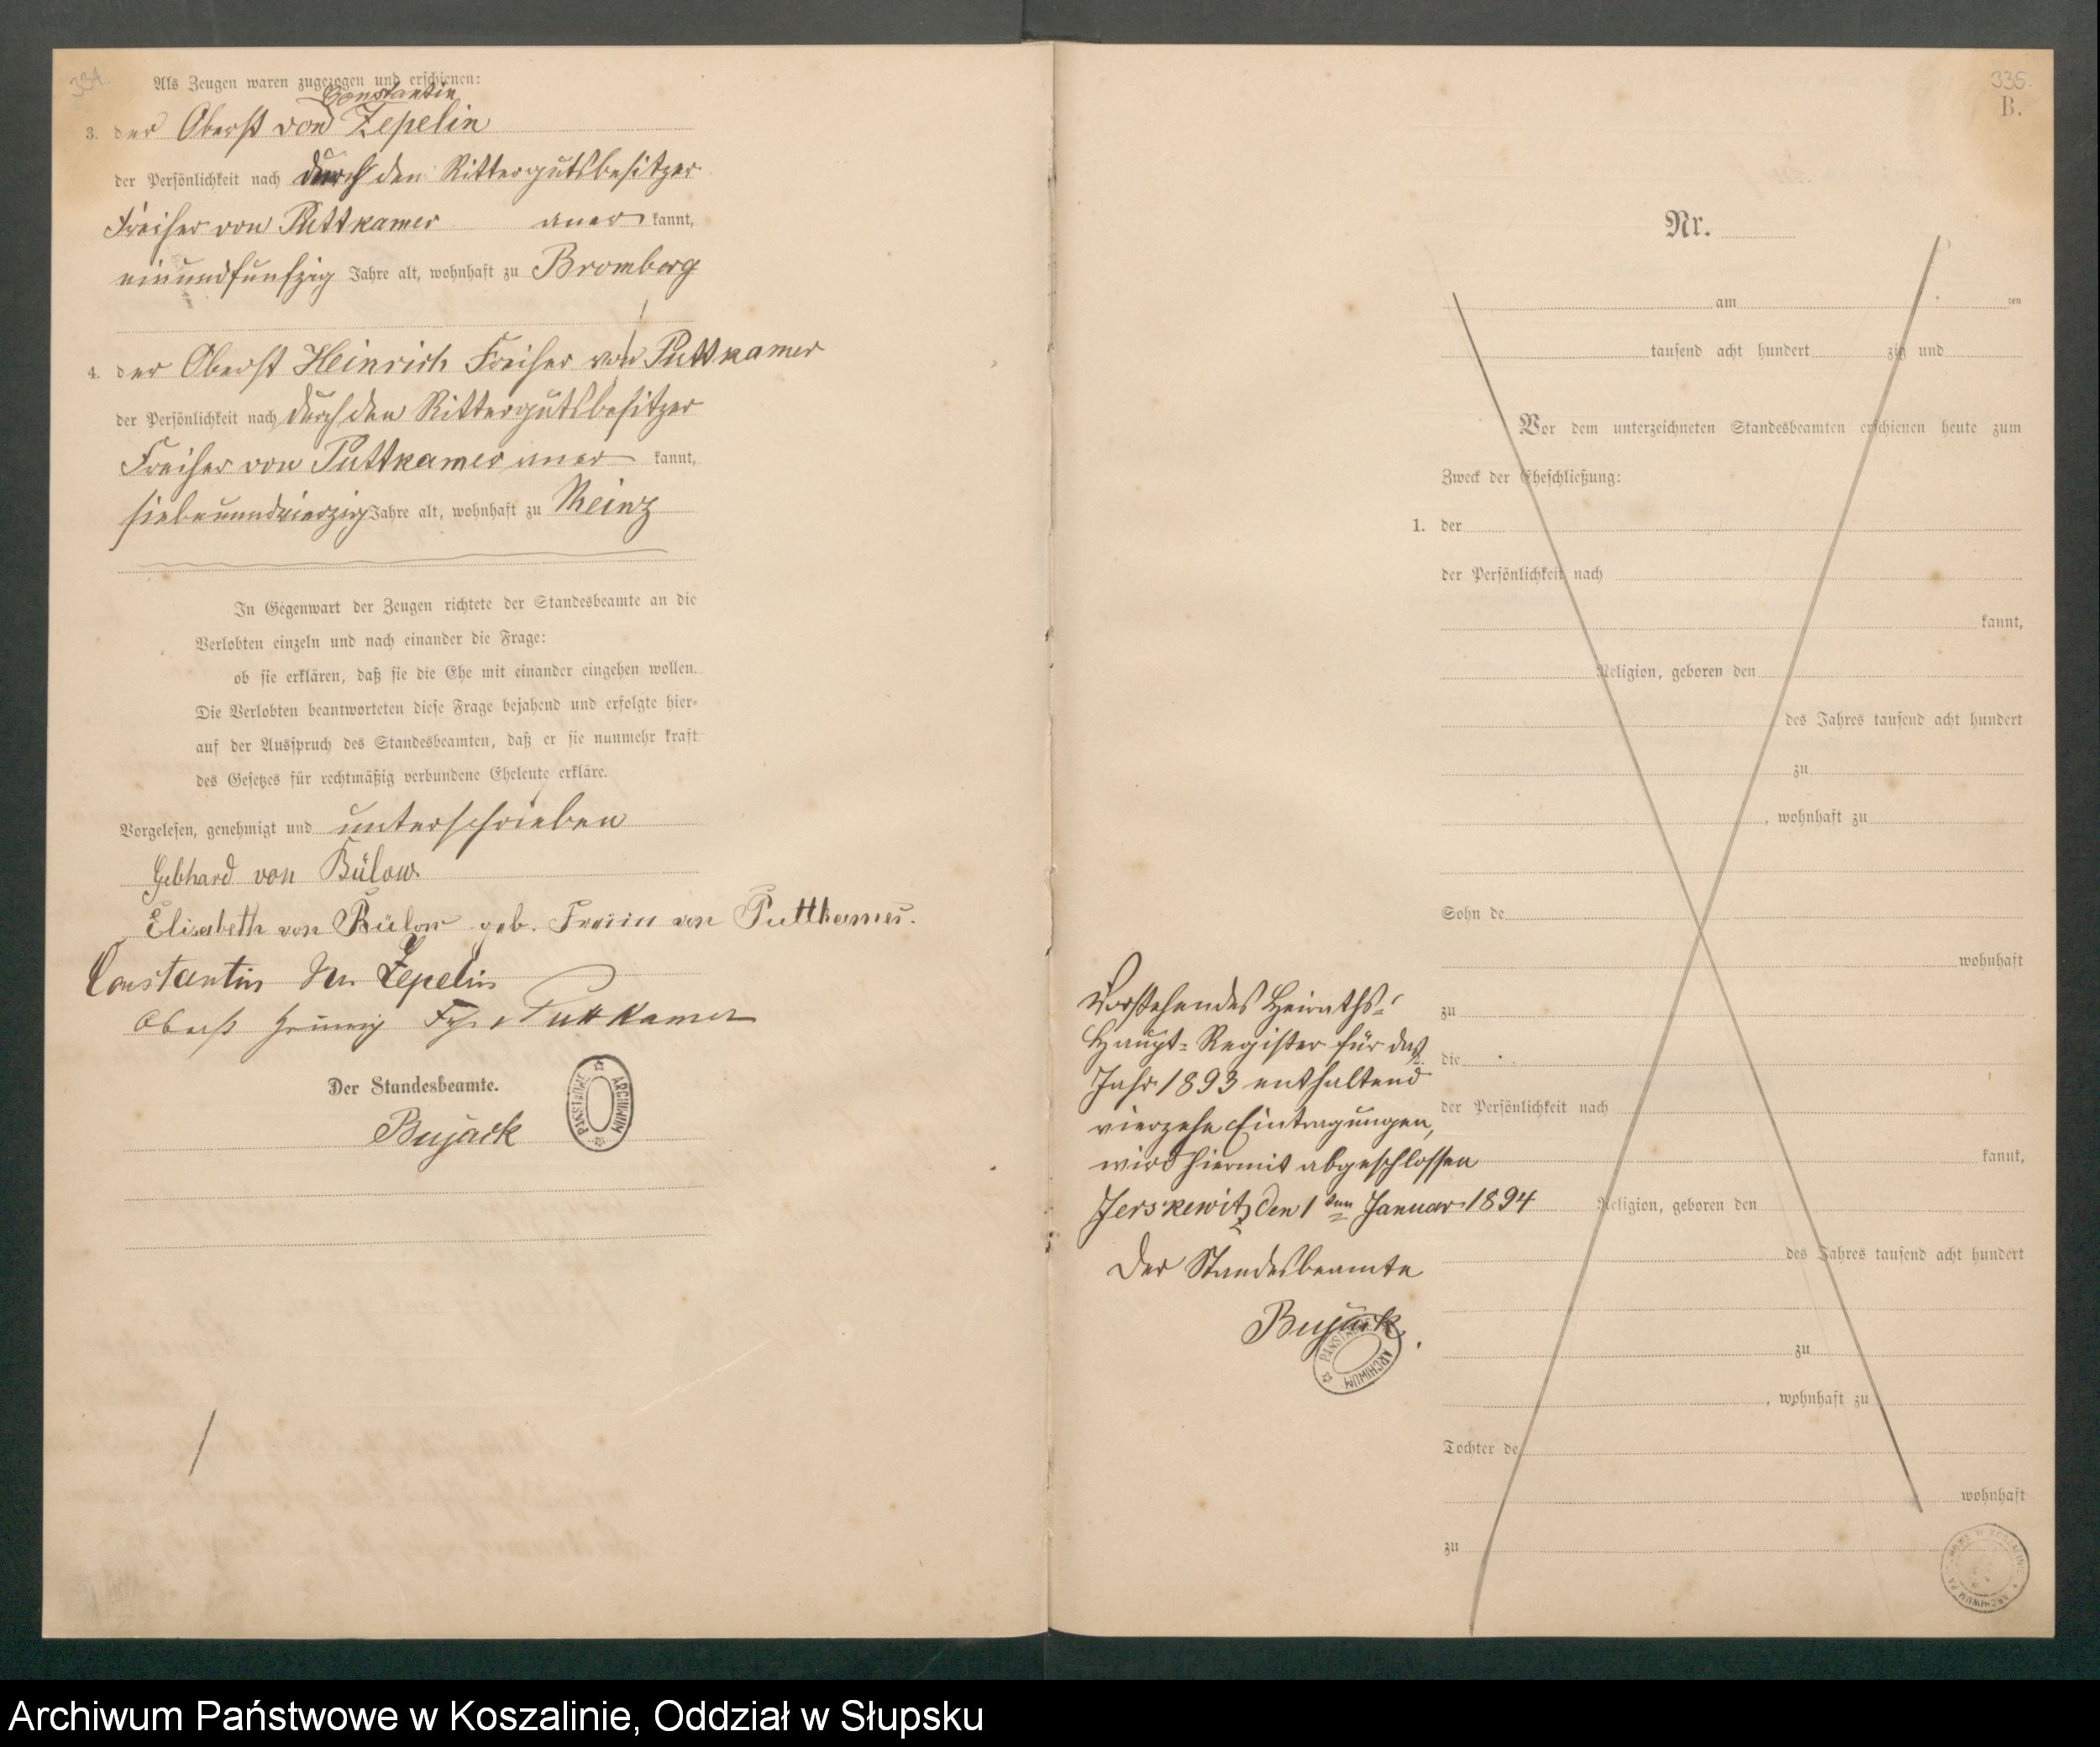 334.
Als Zeugen waren zugezogen und erschienen:
Constantin
3. der Oberst von Zepelin
der Persönlichkeit nach durch den Rittergutsbesitzer
Freiher von Puttkamer aner kannt,
einundfünfzig Jahre alt, wohnhaft zu Bromberg
4. der Oberst Heinrich Freiher von Puttkamer
der Persönlichkeit nach durch den Rittergutsbesitzer
Freiher von Puttkamer aner kannt,
siebenundvierzig Jahre alt, wohnhaft zu Meinz
In Gegenwart der Zeugen richtete der Standesbeamte an die
Verlobten einzeln und nach einander die Frage:
ob sie erklären, daß sie die Ehe mit einander eingehen wollen.
Die Verlobten beantworteten diese Frage bejahend und erfolgte hier=
auf der Ausspruch des Standesbeamten, daß er sie nunmehr kraft
des Gesetzes für rechtmäßig verbundene Eheleute erkläre.
Vorgelesen, genehmigt und unterschrieben
Gebhard von Bülow
Elisabeth von Bülow geb. Freiin von Puttkamer.
Constantin von Zepelin
Oberst Heinrich Frh. v Puttkamer
Der Standesbeamte.
Bujack
ARCHIWUM PAŃSTWOWE
335.
B.
Nr.
am ten
tausend acht hundert zig und
Vor dem unterzeichneten Standesbeamten erschienen heute zum
Zweck der Eheschließung:
1. der
der Persönlichkeit nach
kannt,
Religion, geboren den
des Jahres tausend acht hundert
zu
, wohnhaft zu
Sohn de
wohnhaft
zu
die
der Persönlichkeit nach
kannt,
Religion, geboren den
des Jahres tausend acht hundert
zu
, wohnhaft zu
Tochter de
wohnhaft
zu
Vorstehendes Heiraths=
Haupt=Register für das
Jahr 1893 enthaltend
vierzehn Eintragungen,
wird hiermit abgeschlossen
Jerskewitz den 1ten Januar 1894
Der Standesbeamte
Bujack
ARCHIWUM PAŃSTWOWE
Archiwum Państwowe w Koszalinie, Oddział w Słupsku